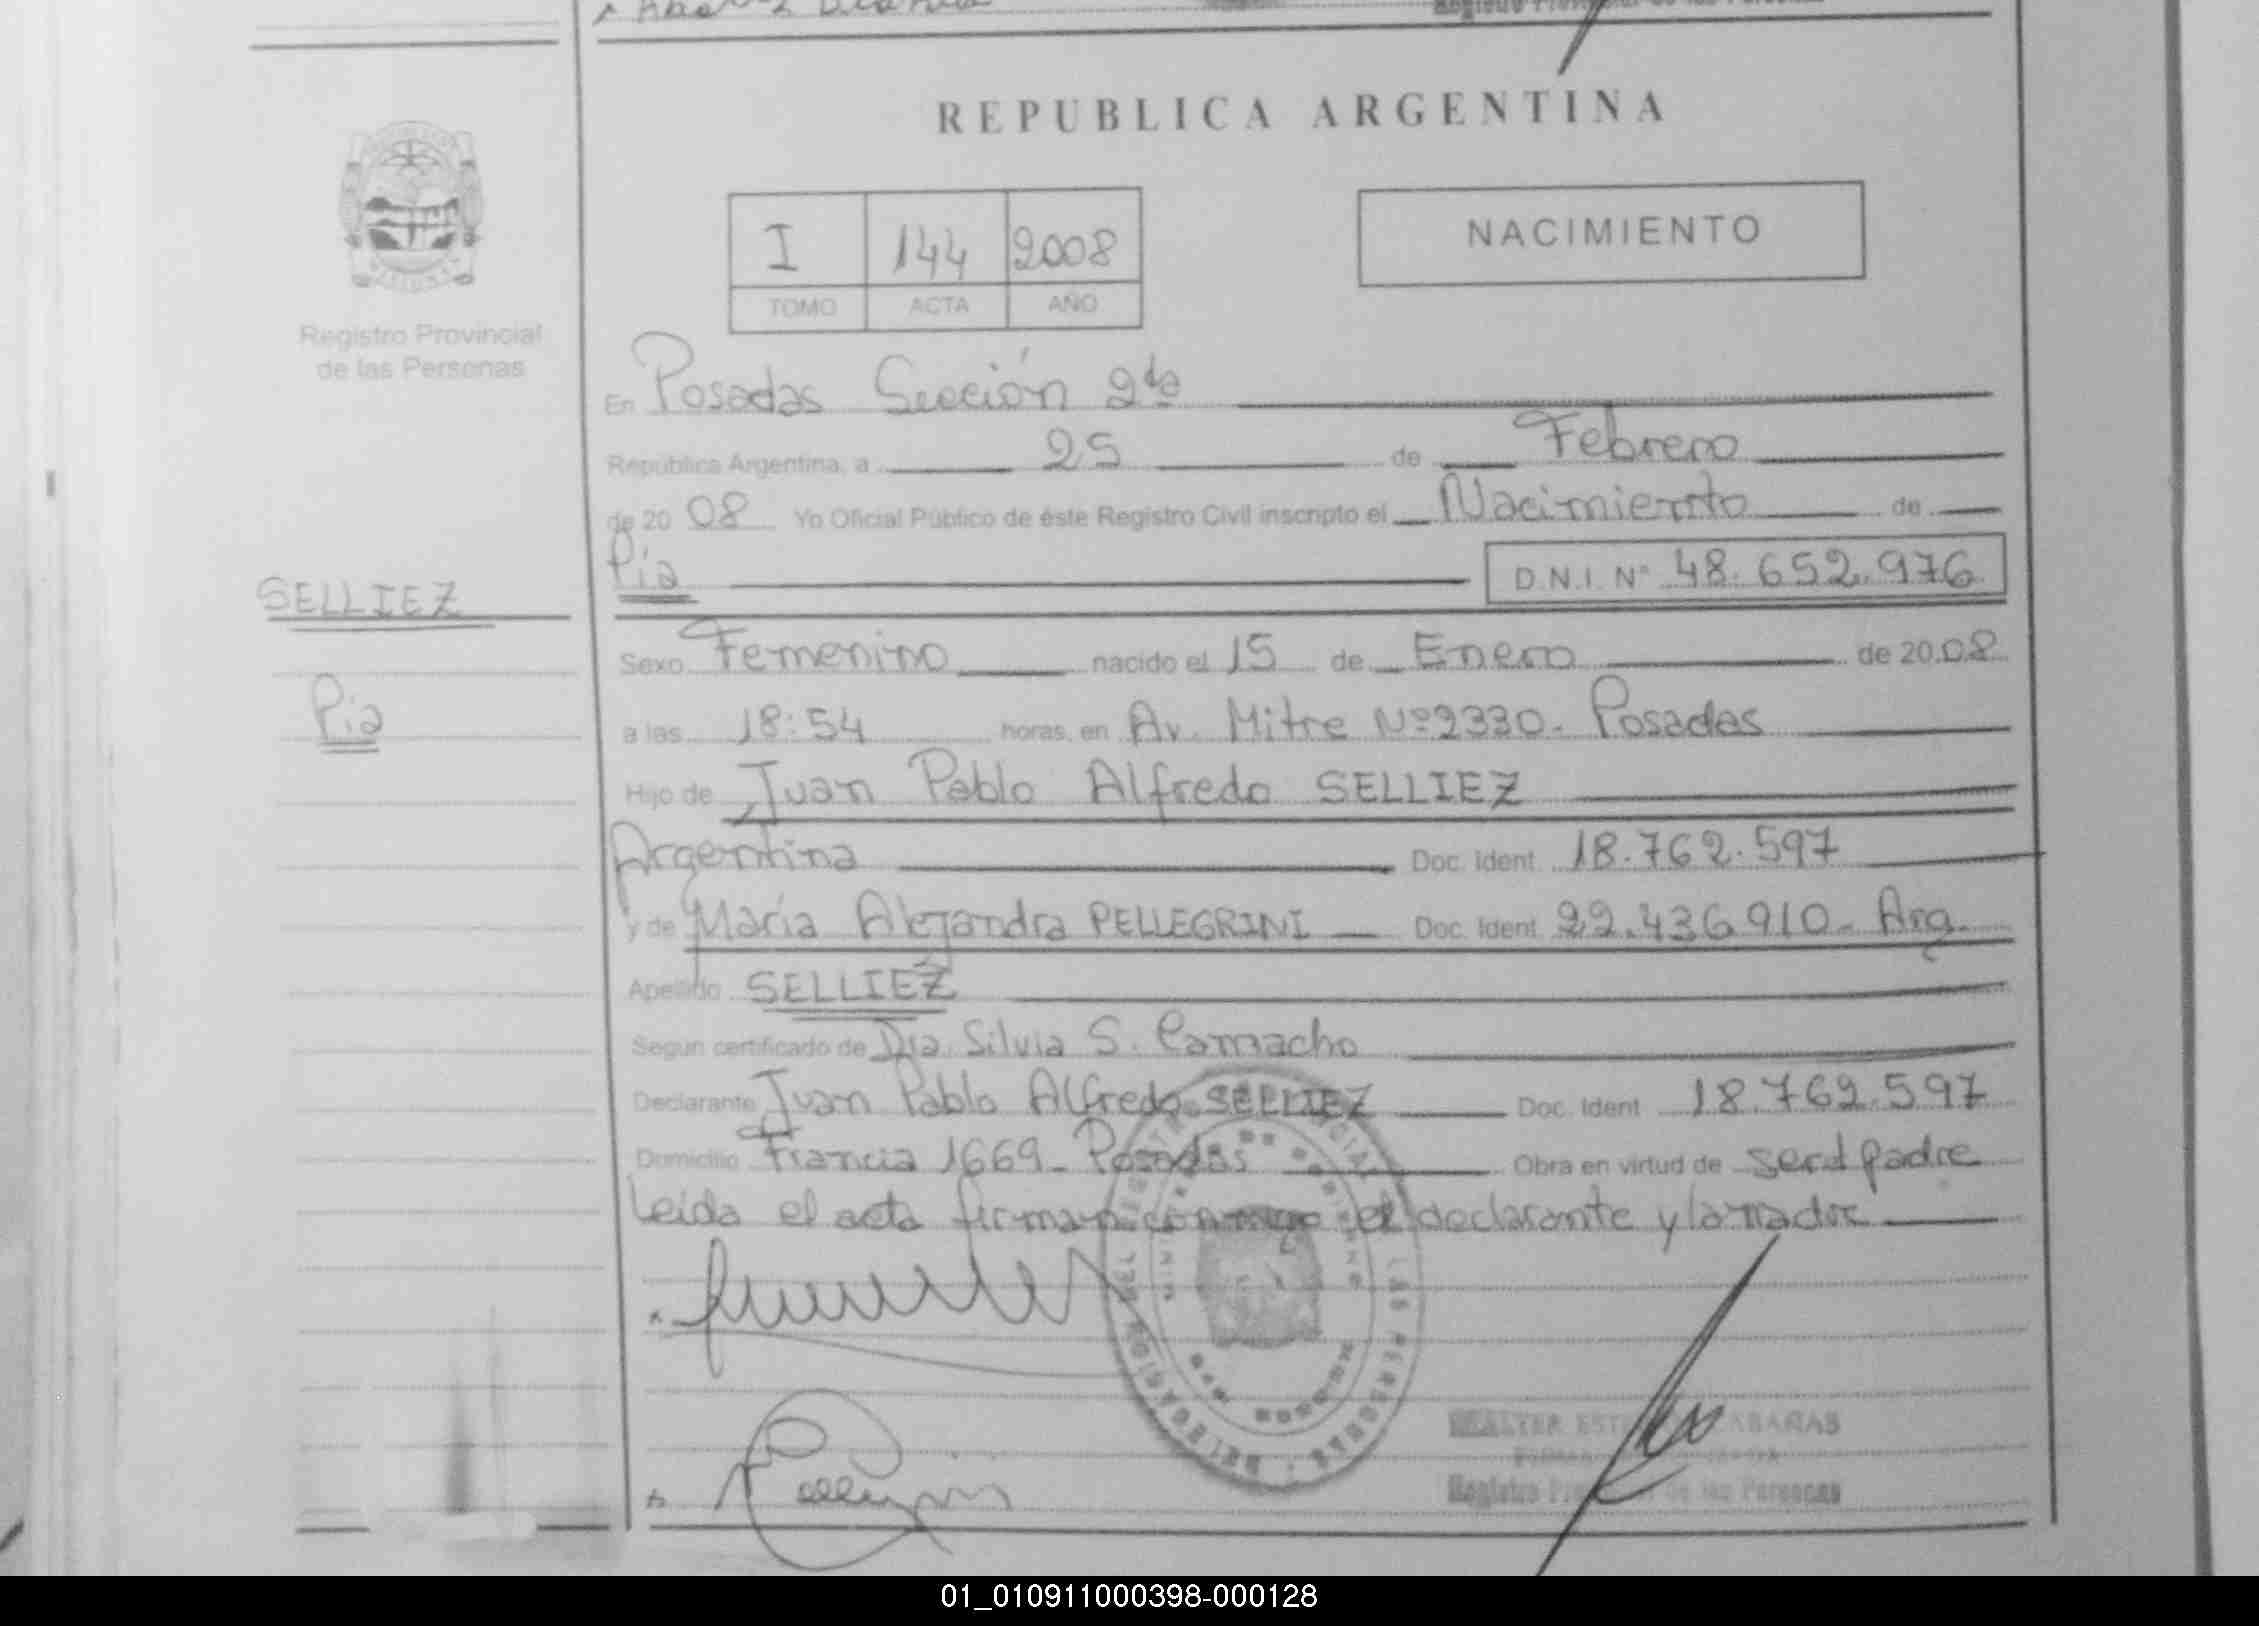 REPUBLICA ARGENTINA
I 144 2008
TOMO ACTA AÑO
NACIMIENTO
Registro Provincial
de las Personas
En Posadas Sección 2da
República Argentina, a 25 de Febrero
de 20 08 Yo Oficial Público de éste Registro Civil inscripto el Nacimiento de
Pia D.N.I. Nº 48.652.976
SELLIEZ
Pia
Sexo Femenino nacido el 15 de Enero de 20 08
a las 18:54 horas, en Av. Mitre Nº 2330- Posadas
Hijo de Juan Pablo Alfredo SELLIEZ
Argentina Doc. Ident. 18.762.597
y de María Alejandra PELLEGRINI Doc. Ident. 22.436.910- Arg.
Apellido SELLIEZ
Según certificado de Dra. Silvia S. Camacho
Declarante Juan Pablo Alfredo SELLIEZ Doc. Ident. 18.762.597
Domicilio Francia 1669- Posadas Obra en virtud de ser el padre
Leida el acta firman conmigo el declarante y la madre
Registro de las Personas
01_010911000398-000128